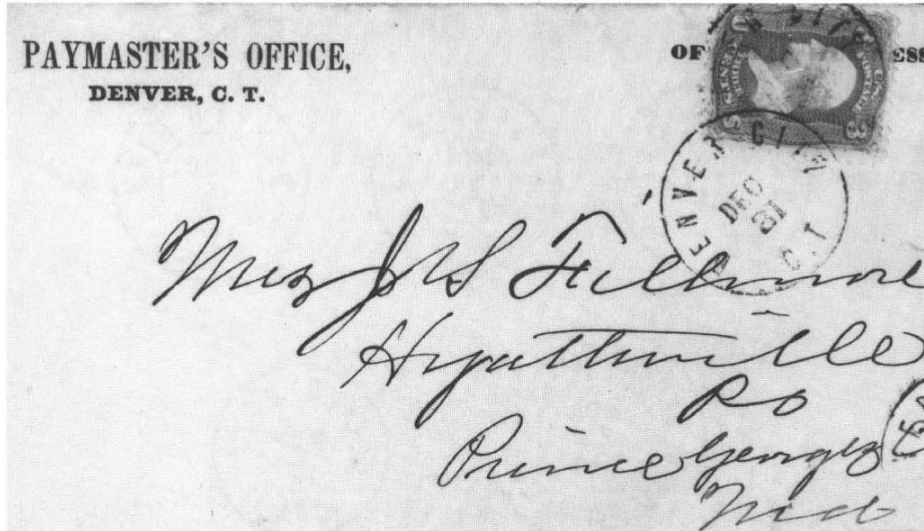 PAYMASTER'S OFFICE,
DENVER, C. T.
OF
ESS
U.S.
POSTAGE
3
DENVER CITY
DEC
31
C. T
Mrs J S Fillmore
Hyattsville
PO
Prince Georges
Md